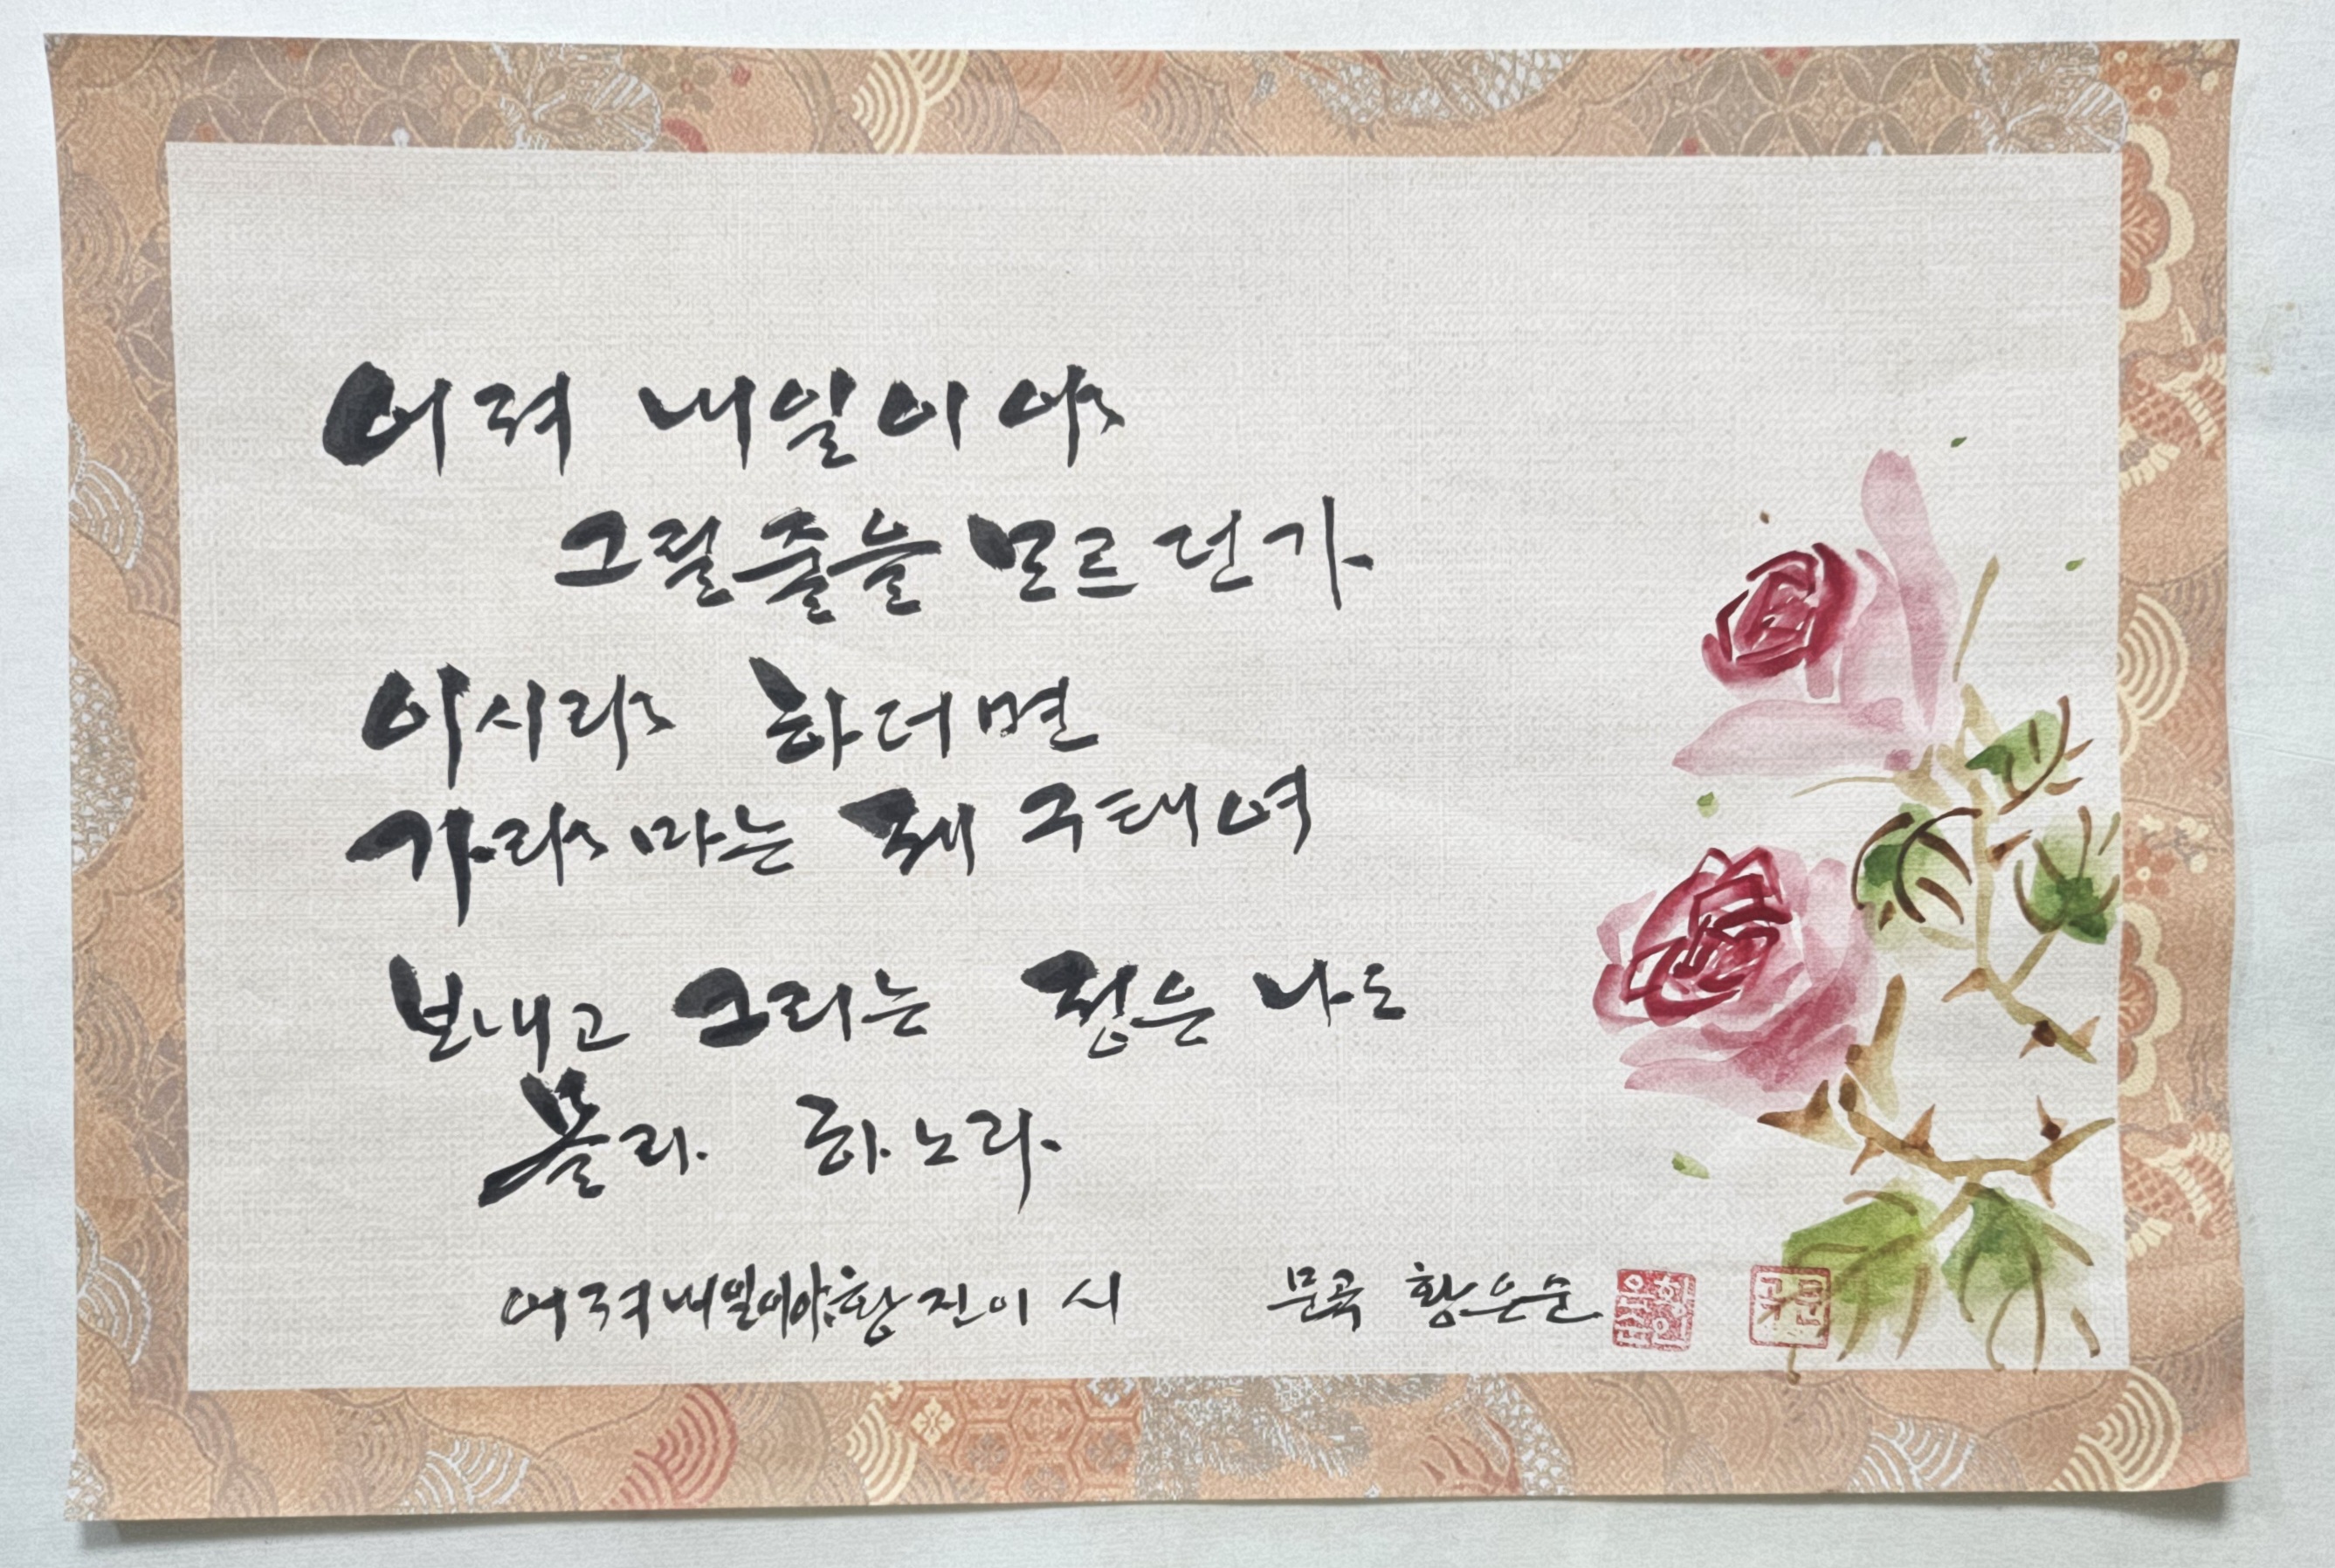 어져 내일이야
그릴줄을 모르던가
이시라 하더면
가라마는 제 구태여
보내고 그리는 정은 나도
몰라 하노라
어져내일이야 황진이 시 문곡 황은순
문곡